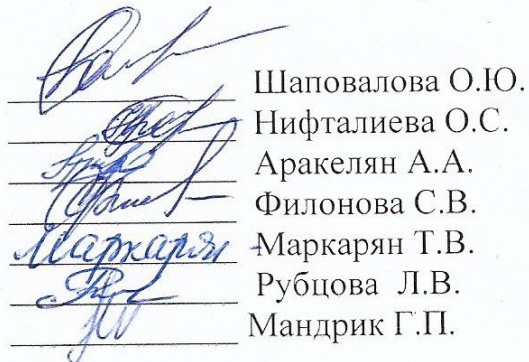 Шаповалова О.Ю.
Нифталиева О.С.
Аракелян А.А.
Филонова С.В.
Маркарян Маркарян Т.В.
Рубцова Л.В.
Мандрик Г.П.